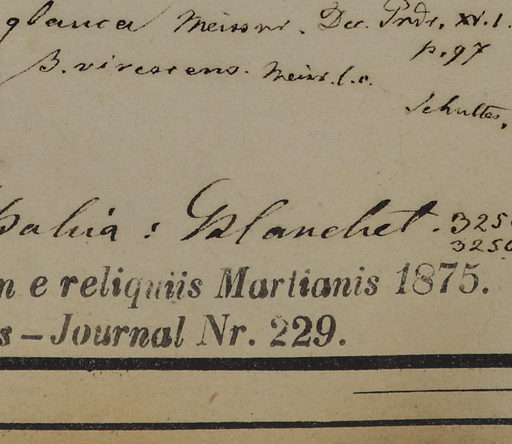 glauca Meissner. Dec. Prdr. XV. 1.
p. 97
β. virescens. Meiss. l. c.
Schultes.
Bahia: Blanchet. 325
3250
n e reliquiis Martianis 1875.
s – Journal Nr. 229.